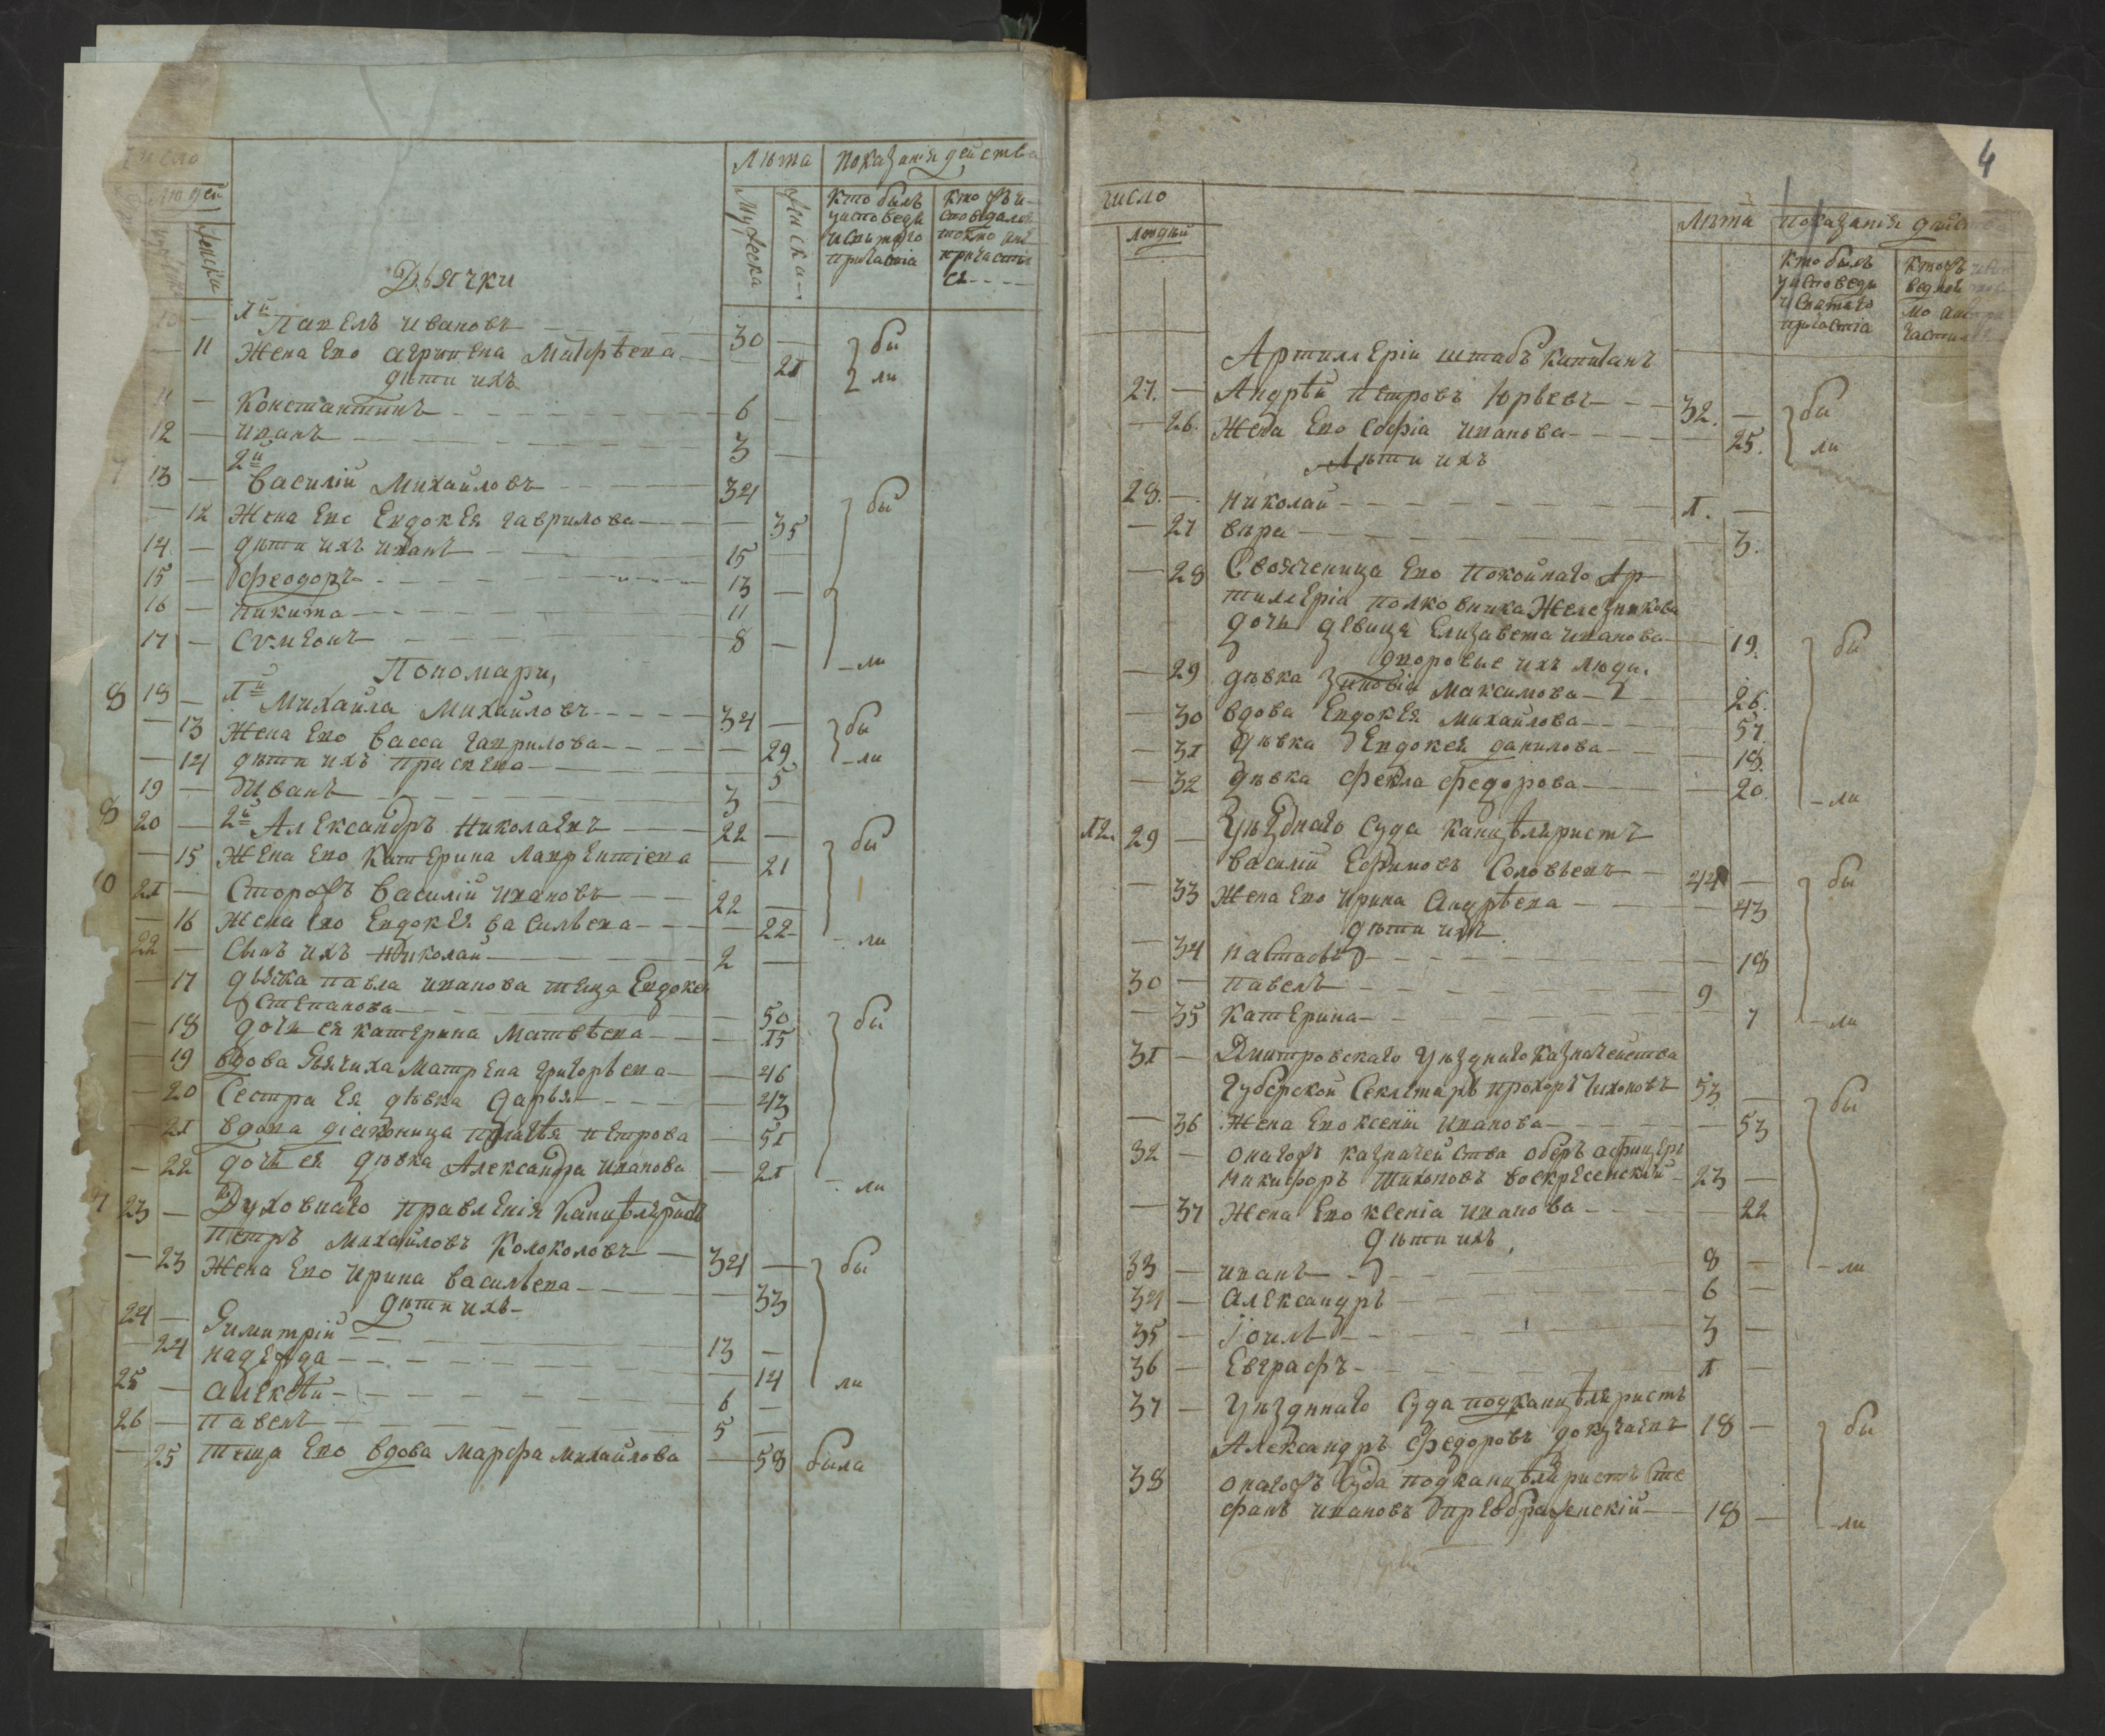 число
людей
женска
Лѣта
Показания действа
мужеска
женска
Кто былъ
у исповеди
и святаго
причастиа
Кто жъ и-
споведался
токмо а не
причасти-
ся
Дьячки
1й
10 — Павелъ Ивановъ 30 —
— 11 Жена Ево Агрипена Матфѣева — 21
бы
ли
дѣти ихъ
11 — Константинъ 6 —
12 — Иванъ 3 —
2й
7 13 — Василiй Михайловъ 34
— 12 Жена Ево Евдокея Гаврилова — 35
бы
14 — дѣти ихъ Иванъ 15 —
15 — Феодоръ 13 —
16 — Никита 11
17 — Сѵмеонъ 8 —
ли
Пономари,
1й
8 18 — Михайла Михайловъ 34 —
— 13 Жена Ево Васса Гаврилова — 29
бы
ли
— 14 дѣти ихъ Прасковья 5
19 — Иванъ 3 —
20 — 2й Александръ Николаевъ 22 —
— 15 Жена Ево Катерина Лаврентiева — 21
бы
10 21 — Сторожъ Василiй Ивановъ 22 —
— 16 Жена ево Евдокея Васильева — 22
22 — Сынъ ихъ Николай 2 —
ли
— 17 дьячка Павла Иванова теща Евдокея
Степанова — 50
— 18 дочь ея Катерина Матвѣева — 15
бы
— 19 вдова дьячиха Матрена Григорьева — 46
— 20 Сестра Ея дѣвка Дарья — 43
— 21 вдова дiаконица Пелагѣя Петрова — 51
— 22 дочь ея дѣвка Александра Иванова — 21
ли
23 — Духовнаго правленiя Канцѣляристъ
Петръ Михайловъ Колоколовъ 34 —
— 23 Жена Ево Ирина Васильева — 33
бы
дѣти ихъ
24 — Димитрiй 13 —
— 24 Надежда — 14
25 — Алексѣй 6 —
ли
26 — Павелъ 5 —
— 25 теща Ево вдова Марфа Михайлова — 58 была
4
число
людей
Лѣта
показанiя дѣйс
Кто былъ
у исповеди
и святаго
причастiа
Артиллерiи штабъ капитанъ
27. — Андрей Петровъ Юрьевъ 32. —
— 26. Жена Ево Софiа Иванова — 25.
бы
ли
дѣти ихъ
28. — Николай 1. —
— 27 вѣра — 3.
— 28 Свояченица Ево покойнаго Ар-
тиллерiи полковника Железникова
дочь девица Елизавета Иванова — 19.
бы
дворовые ихъ люди.
— 29 дѣвка Зиновiя Максимова — 26.
— 30 вдова Евдокея Михайлова — 57.
— 31 дѣвка Евдокея Данилова — 18.
— 32 дѣвка Фекла Федорова — 20.
ли
12. 29 — Уѣзднаго Суда канцѣляристъ
Василiй Ефимовъ Соловьевъ 44 —
— 33 Жена Ево Ирина Андрѣева — 43
бы
дѣти ихъ
— 34 Настасья — 18
30 — Павелъ 9
— 35 Катерина — 7
ли
31 — Дмитровскаго уѣзднаго казначейства
Губерской Секлетарь Прохоръ Тихоновъ 53 —
— 36 Жена Ево Ксенiи Иванова — 53
бы
32 — онагожъ казначейства оберъ афицеръ
Никифоръ Тихоновъ Воскресенскiй 23 —
— 37 Жена Ево Ксенiа Иванова — 22
дѣти ихъ,
33 — Иванъ 8 —
ли
34 — Александръ 6 —
35 — Iоиль 3 —
36 — Евграфъ 1 —
37 — Уѣзднаго Суда подканцѣляристъ
Александръ Федоровъ Докучаевъ 18 —
бы
38 онагожъ Суда подканцѣляристъ Сте
фанъ Ивановъ Преображенскiй 18 —
ли